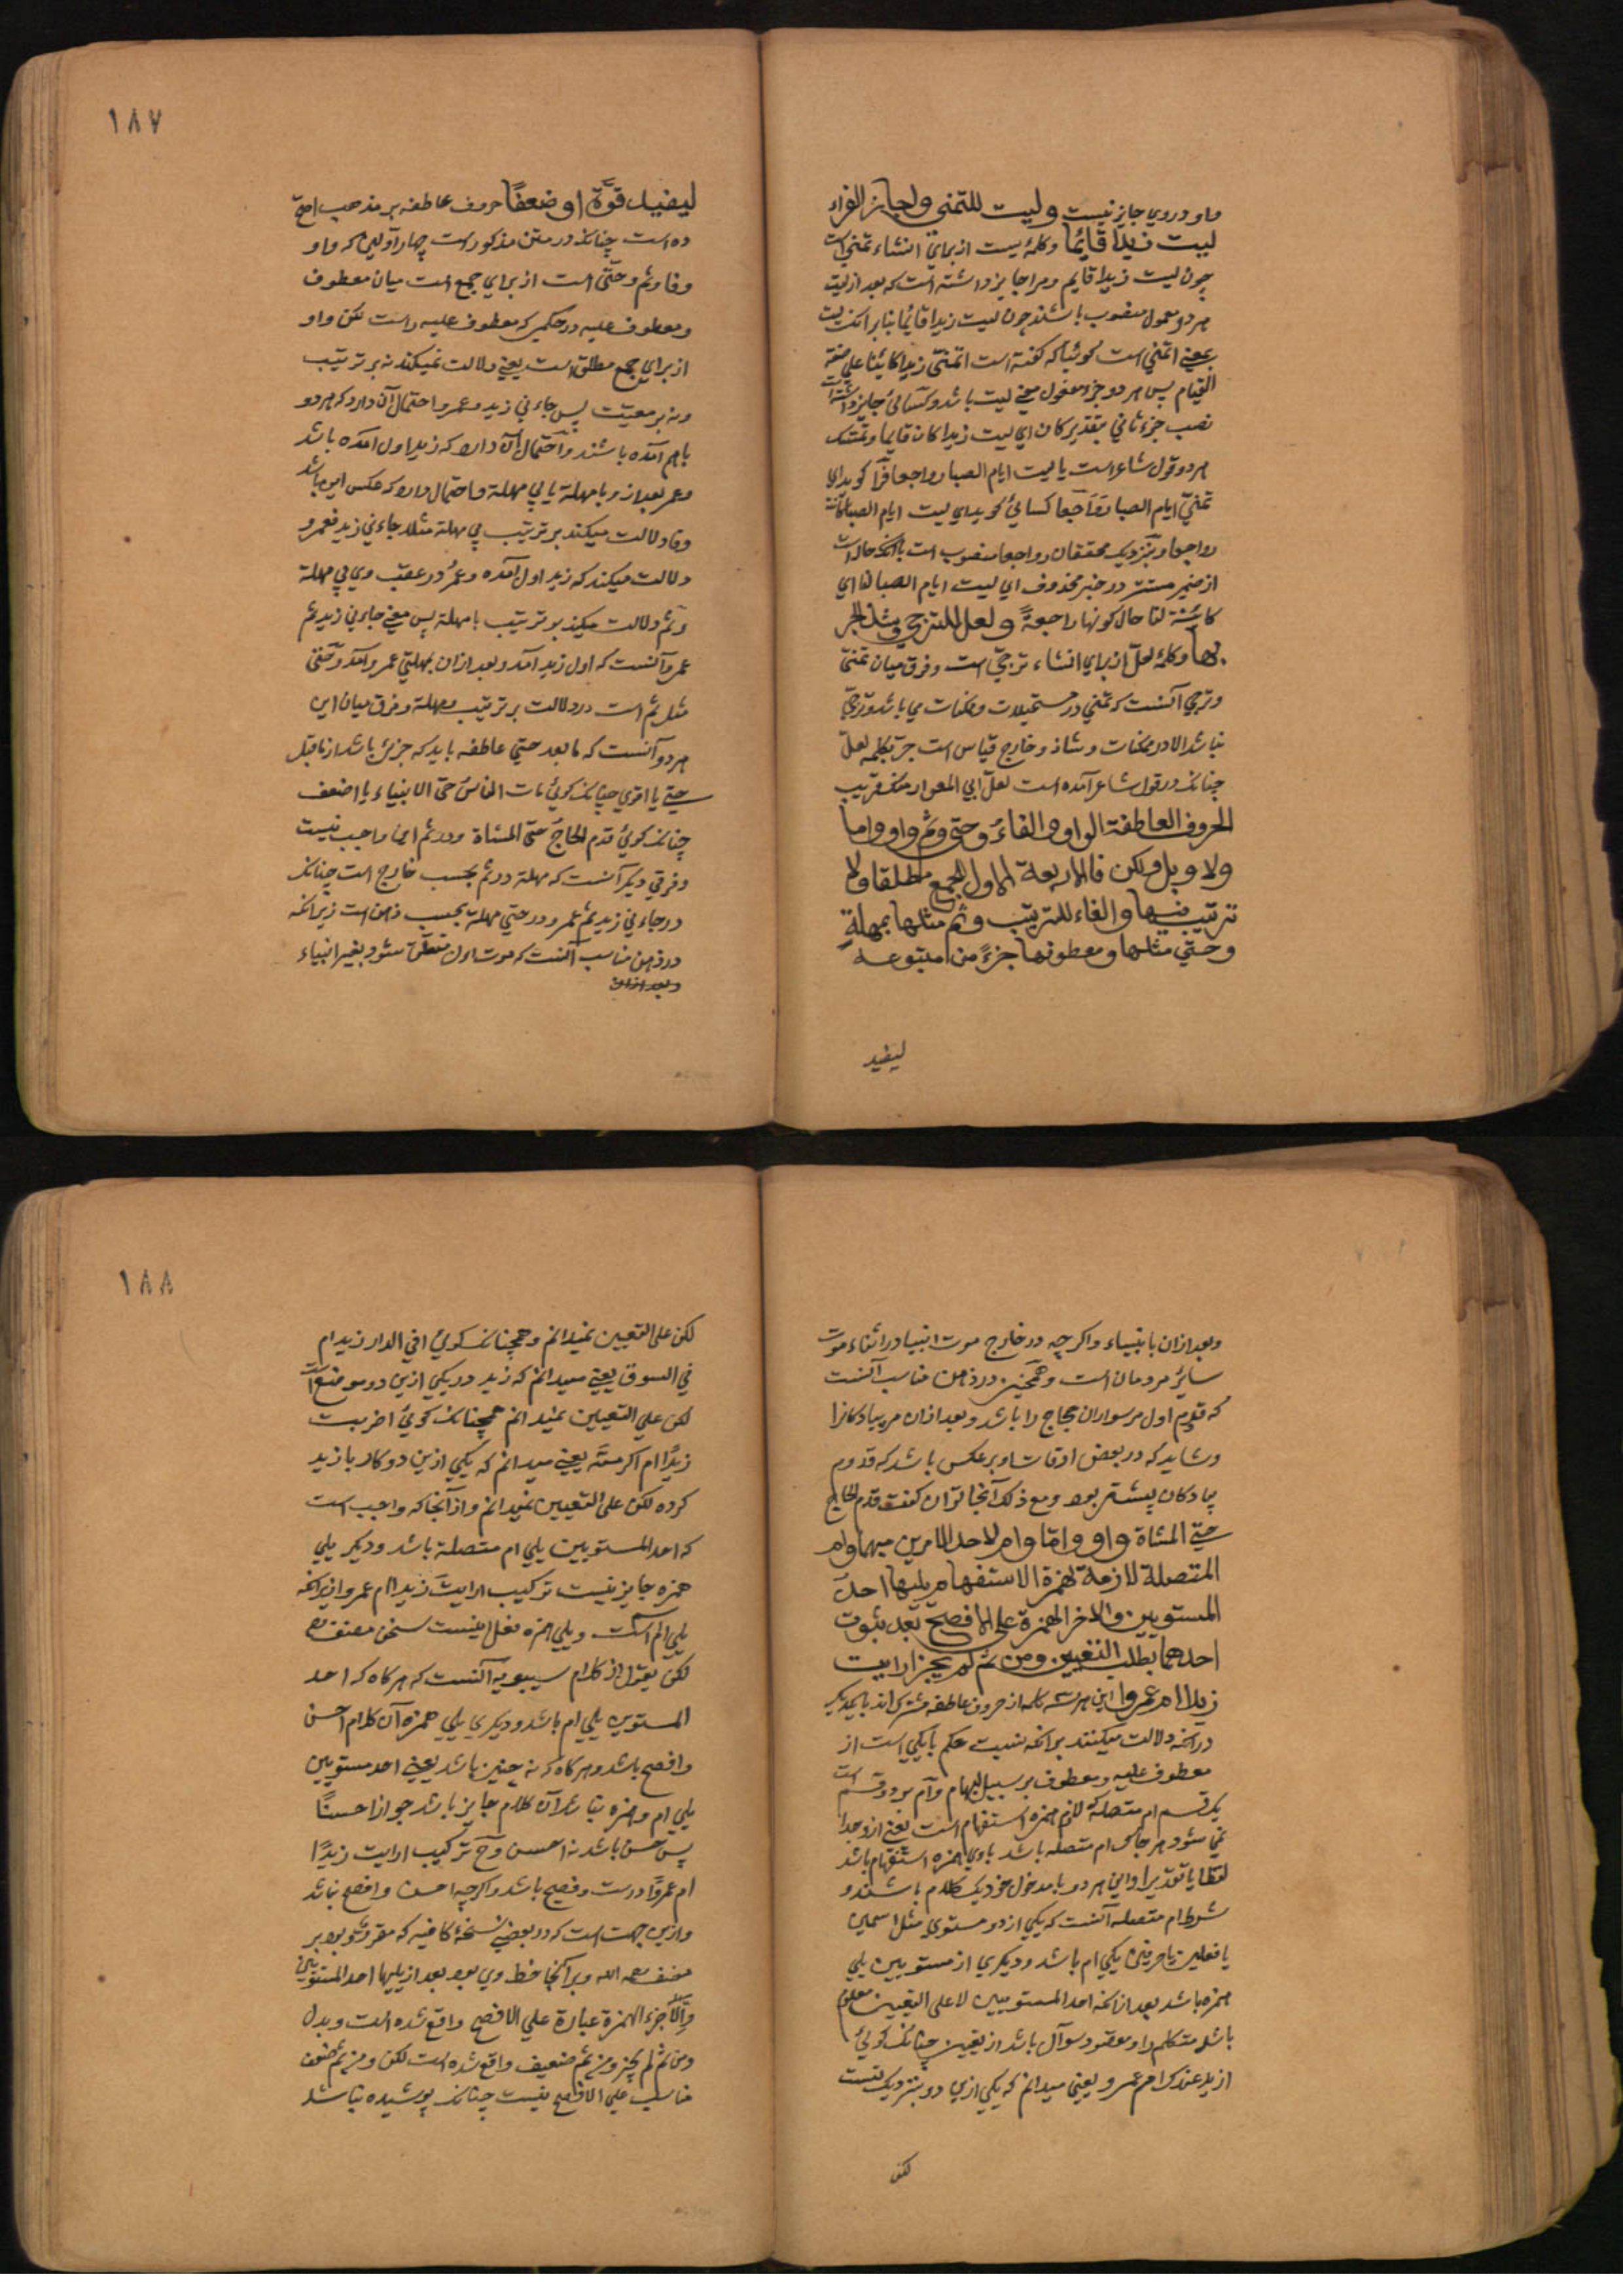 واو دروي جايز نيست وليت للتمني واجاز الفراء
ليت زيدا قائما وكلمهٔ ليت از براي انشاء تمني است
چون ليت زيدا قايم ومرا جايز داشته است كه بعد از ليت
هر دو معمول منصوب باشند چون ليت زيدا قائما بنابر آنكه ليت
بمعني اتمني است كوئيا كه كفته است اتمني زيدا كائنا على صفة
القيام پس هر دو جزء مفعول معني ليت باشد وكسائي جايز داشته است
نصب جزء ثاني بتقدير كان اي ليت زيدا كان قايما ومتمسك
هر دو قول شاعر است يا ليت ايام الصبا رواجعا فرا كويد اي
تمني ايام الصبا رواجعا كسائي كويد اي ليت ايام الصبا كانت
رواجعا وبنزديك محققان رواجعا منصوب است بآنكه حال است
از ضمير مستتر در خبر محذوف اي ليت ايام الصبا لنا اي
كائنة لنا حال كونها راجعة ولعل للترجي وشذ الجر
بها وكلمهٔ لعل از براي انشاء ترجي است وفرق ميان تمني
وترجي آنست كه تمني در مستحيلات وممكنات مي باشد وترجي
نباشد الا در ممكنات وشاذ وخارج قياس است جر بكلمه لعل
چنانكه در قول شاعر آمده است لعل ابي المغوار منك قريب
الحروف العاطفة الواو والفاء وحتى وثم واو واما
ولا وبل ولكن فالاربعة الاول للجمع مطلقا ولا
ترتيب فيها والفاء للترتيب وثم مثلها بمهلة
وحتي مثلها ومعطوفها جزء من متبوعه
ليفيد
١٨٧
ليفيد قوة او ضعفا حروف عاطفه بر مذهب اصح
ده است چنانكه در متن مذكور است چهار اولين كه واو
وفا وثم وحتى است از براي جمع است ميان معطوف
ومعطوف عليه در حكمي كه معطوف عليه راست لكن واو
از براي جمع مطلق است يعني دلالت نميكند نه بر ترتيب
ونه بر معيت پس جاءني زيد وعمرو احتمال آن دارد كه هر دو
باهم آمده باشند واحتمال آن دارد كه زيد اول آمده باشد
وعمر بعد از و با مهلة يا بي مهلة واحتمال دارد كه عكس اين باشد
وفا دلالت ميكند بر ترتيب بي مهلة مثلا جاءني زيد فعمرو
دلالت ميكند كه زيد اول آمده وعمر در عقب وي بي مهلة
وثم دلالت ميكند بر ترتيب با مهلة پس معني جاءني زيد ثم
عمرو آنست كه اول زيد آمد وبعد ازان بمهلتي عمرو آمد وحتى
مثل ثم است در دلالت بر ترتيب ومهلة وفرق ميان اين
هر دو آنست كه ما بعد حتي عاطفه بايد كه جزئ باشد از ما قبل
حتي يا اقوي چنانكه كوئي مات الناس حتى الانبياء يا اضعف
چنانكه كوئي قدم الحاج حتى المشاة ودر ثم اين واجب نيست
وفرقي ديكر آنست كه مهلة در ثم بحسب خارج است چنانكه
در جاءني زيد ثم عمرو ودر حتي مهلة بحسب ذهن است زيرانكه
در ذهن مناسب آنست كه موت اول متعلق شود بغير انبياء
وبعد ازان
وبعد ازان بانبياء واكرچه در خارج موت انبيا در اثناء موت
سائر مردمان است وهمچنين در ذهن مناسب آنست
كه قدوم اول مر سواران حجاج را باشد وبعد ازان مر پيادكانرا
وشايد كه در بعض اوقات او بر عكس باشد كه قدوم
پيادكان پيشتر بود ومع ذلك آنجا توان كفت قدم الحاج
حتي المشاة واو واما وام لاحد الامرين مبهما وام
المتصلة لازمة لهمزة الاستفهام يليها احد
المستويين والاخر الهمزة على الافصح بعد ثبوت
احدهما بطلب التعيين ومن ثم لم يجز ارايت
زيدا ام عمروا اين هر سه كلمه از حروف عاطفه مشترك اند با يكديكر
در آنكه دلالت ميكنند بر آنكه نسبت حكم با يكي است از
معطوف عليه ومعطوف بر سبيل ابهام وام بر دو قسم است
يك قسم ام متصله كه لازم همزه استفهام است يعني ازو جدا
نمي شود هر جا كه ام متصله باشد با وي همزه استفهام باشد
لفظا يا تقديرا واين هر دو با مدخول خود يك كلام باشند و
شرط ام متصله آنست كه يكي از دو مستوي مثل اسمين
يا فعلين يا حرفين يكي ام باشد وديكري از مستويين يلي
همزه باشد بعد از آنكه احد المستويين لا على التعيين معلوم
باشد متكلم را ومقصود سوآل باشد از تعيين چنانكه كوئي
ازيد عندك ام عمرو يعني ميدانم كه يكي ازين دو بنزديك تست
لكن
١٨٨
لكن على التعيين نميدانم وهمچنانكه كوئي افي الدار زيد ام
في السوق يعني ميدانم كه زيد در يكي ازين دو موضع است
لكن علي التعيين نميدانم همچنانكه كوئي اضربت
زيدا ام اكرمته يعني ميدانم كه يكي ازين دو كار با زيد
كرده لكن على التعيين نميدانم واز آنجا كه واجب است
كه احد المستويين يلي ام متصلة باشد وديكر يلي
همزه جايز نيست تركيب ارايت زيدا ام عمروا زيرانكه
يلي ام اسمست ويلي همزه فعل اينست سخن مصنف رح
لكن بقول از كلام سيبويه آنست كه هر كاه كه احد
المستويين يلي ام باشد وديكري يلي همزه آن كلام احسن
وافصح باشد وهر كاه كه نه چنين باشد يعني احد مستويين
يلي ام وهمزه نباشد آن كلام جايز باشد جوازا حسنا
پس حسن باشد نه احسن وح تركيب ارايت زيدا
ام عمروا درست وفصيح باشد واكرچه احسن وافصح نباشد
وازين جهت است كه در بعضي نسخهٔ كافيه كه مقرو بود بر
مصنف رحمه الله وبرانجا خط وي بود بعد از يليها احد المستويين
والآخر الهمزة عبارة علي الافصح واقع شده است وبدل
ومن ثم لم يجز ومن ثم ضعيف واقع شده است لكن ومن ثم ضعف
مناسب علي الافصح نيست چنانكه پوشيده نباشد